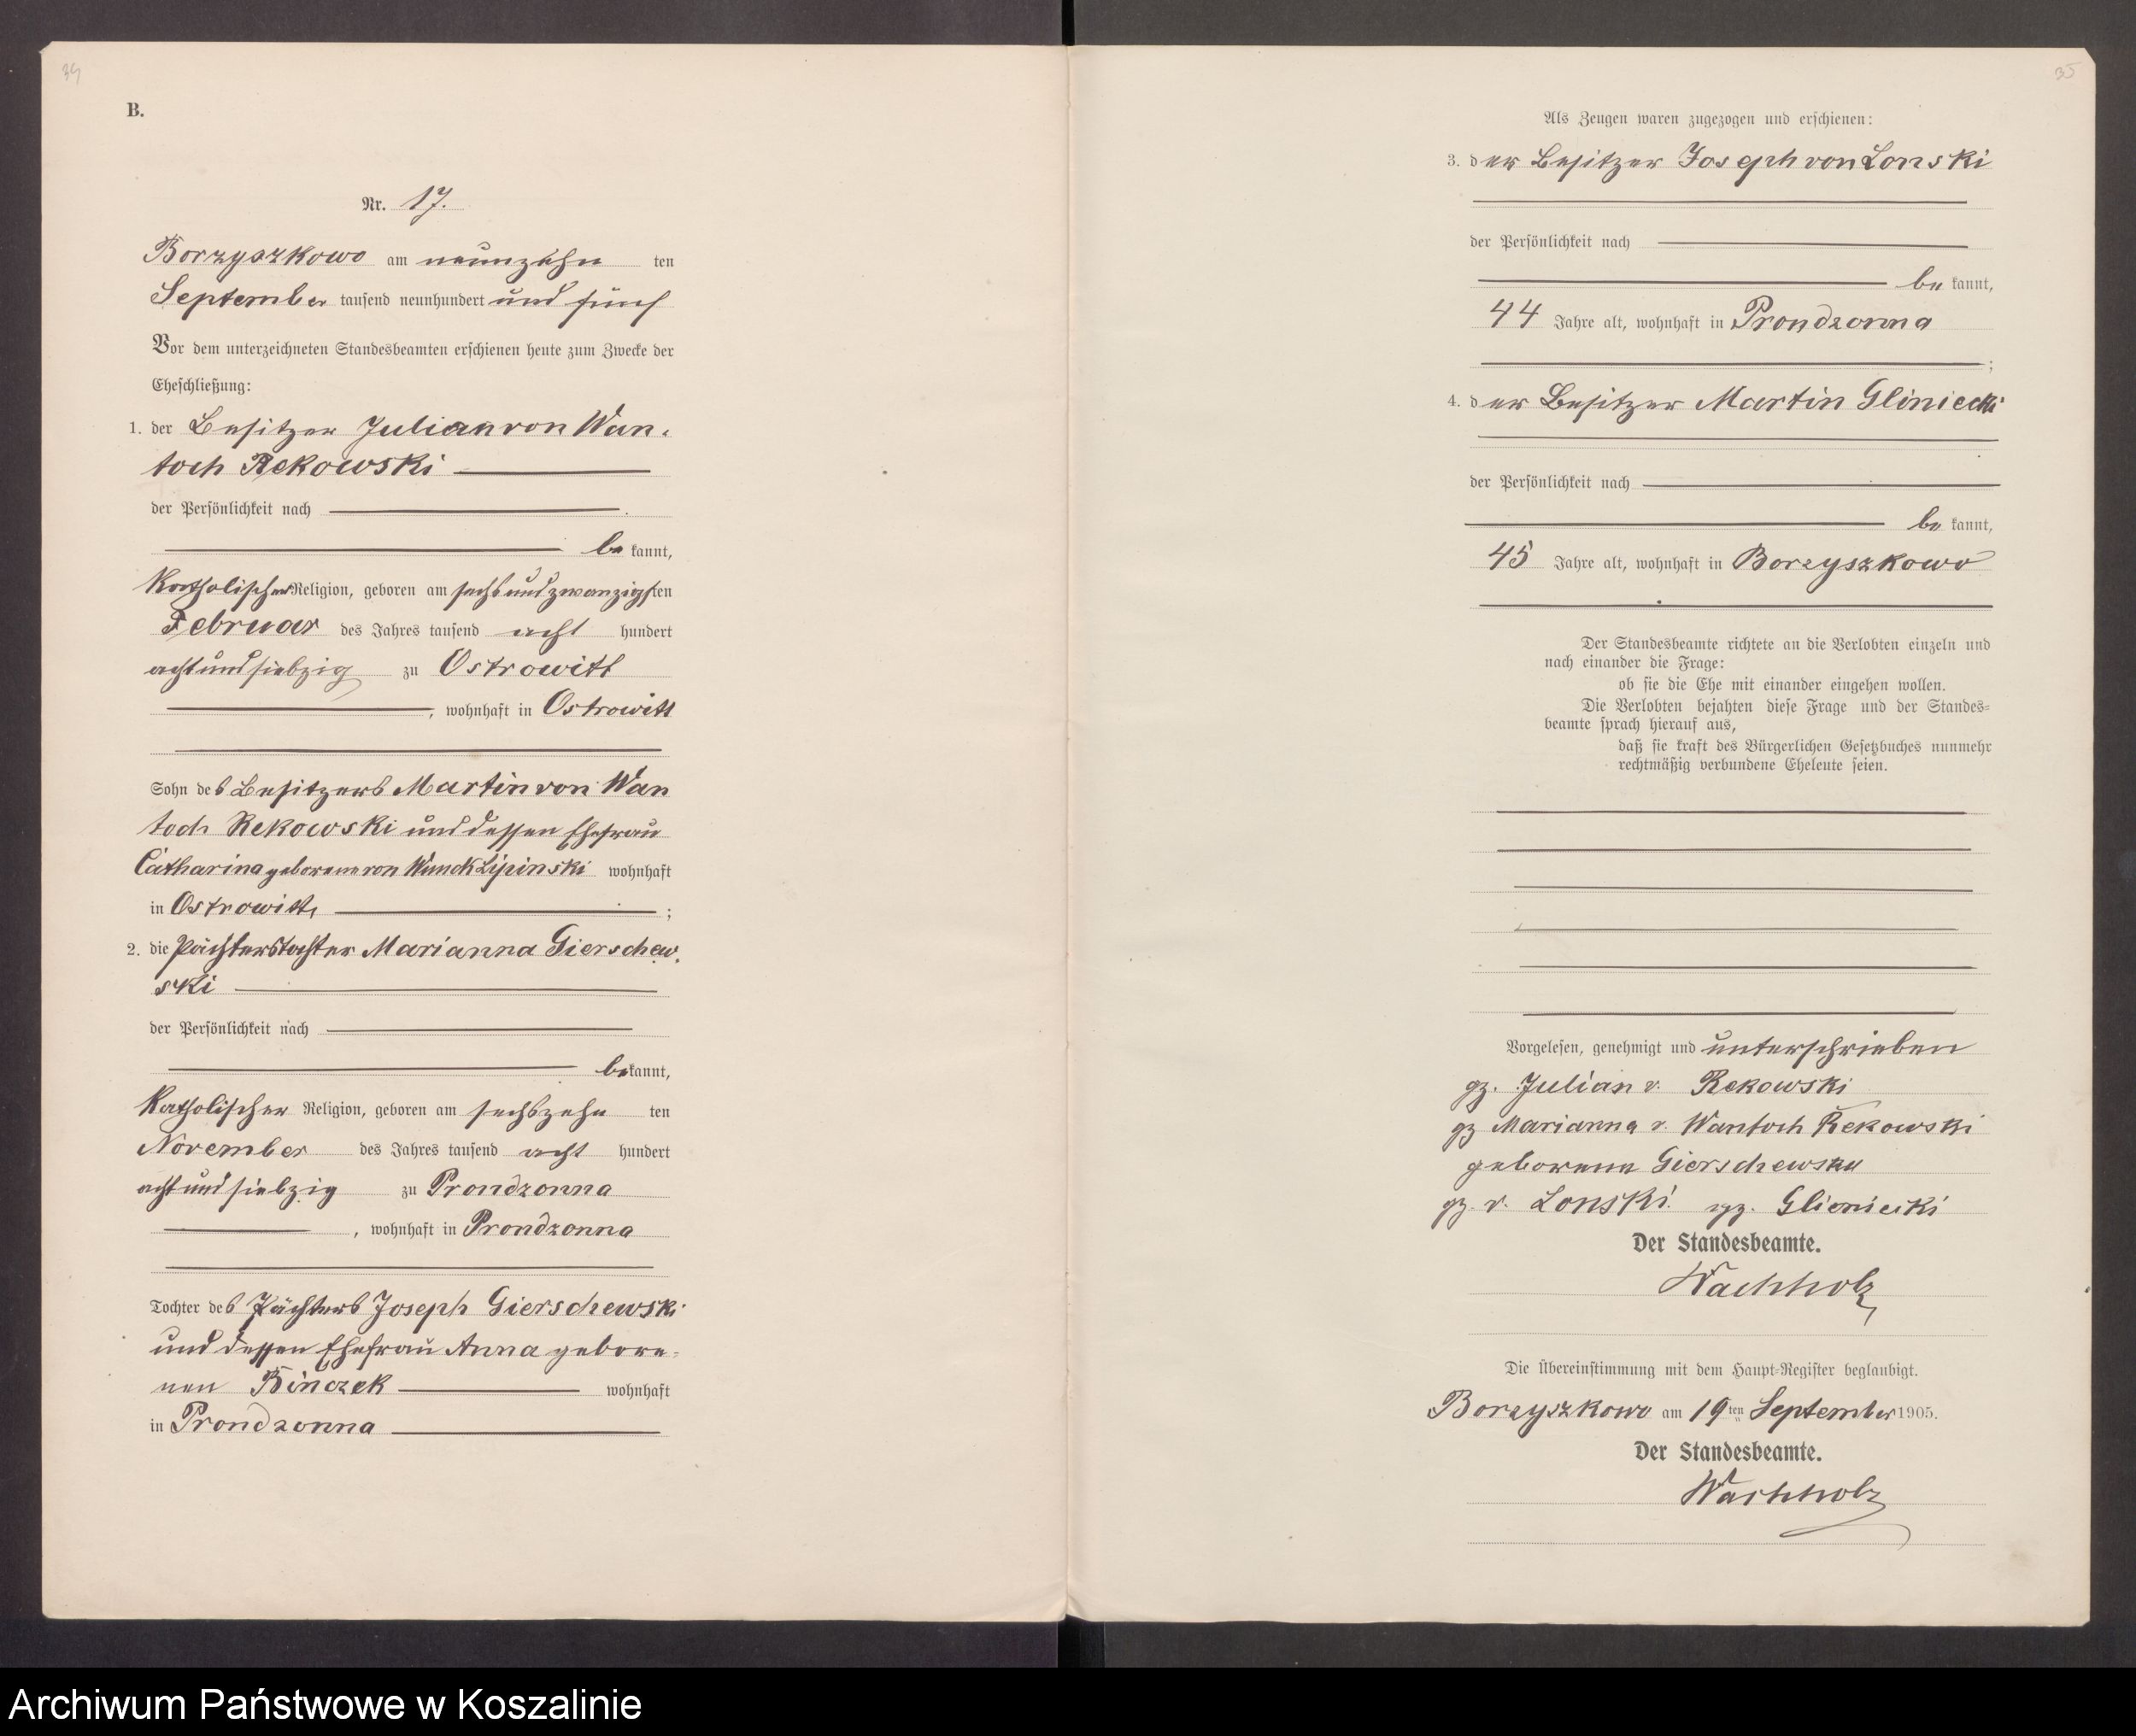 34
B.
Nr. 17.
Borzyszkowo am neunzehn ten
September tausend neunhundert und fünf
Vor dem unterzeichneten Standesbeamten erschienen heute zum Zwecke der
Eheschließung:
1. der Besitzer Julian von Wan-
toch Rekowski
der Persönlichkeit nach
be kannt,
Katholischer Religion, geboren am sechsundzwanzigsten
Februar des Jahres tausend acht hundert
achtundsiebzig zu Ostrowitt
, wohnhaft in Ostrowitt
Sohn des Besitzers Martin von Wan
toch Rekowski und dessen Ehefrau
Catharina geborene von Wnuck Lipinski wohnhaft
in Ostrowitt, ;
2. die Pächterstochter Marianna Gierschew-
ski
der Persönlichkeit nach
bekannt,
Katholischer Religion, geboren am sechszehn ten
November des Jahres tausend acht hundert
achtundsiebzig zu Prondzonna
, wohnhaft in Prondzonna
Tochter des Pächters Joseph Gierschewski
und dessen Ehefrau Anna gebore-
nen Binczek wohnhaft
in Prondzonna
35
Als Zeugen waren zugezogen und erschienen:
3. der Besitzer Joseph von Lonski
der Persönlichkeit nach
be kannt,
44 Jahre alt, wohnhaft in Prondzonna
;
4. der Besitzer Martin Gliniecki
der Persönlichkeit nach
be kannt,
45 Jahre alt, wohnhaft in Borzyszkowo
Der Standesbeamte richtete an die Verlobten einzeln und
nach einander die Frage:
ob sie die Ehe mit einander eingehen wollen.
Die Verlobten bejahten diese Frage und der Standes-
beamte sprach hierauf aus,
daß sie kraft des Bürgerlichen Gesetzbuches nunmehr
rechtmäßig verbundene Eheleute seien.
Vorgelesen, genehmigt und unterschrieben
gz. Julian v. Rekowski
gz Marianna v. Wantoch Rekowski
geborene Gierschewski
gz. v. Lonski. gz. Glieniecki
Der Standesbeamte.
Wachholz
Die Übereinstimmung mit dem Haupt-Register beglaubigt.
Borzyszkowo am 19ten September 1905.
Der Standesbeamte.
Wachholz
Archiwum Państwowe w Koszalinie